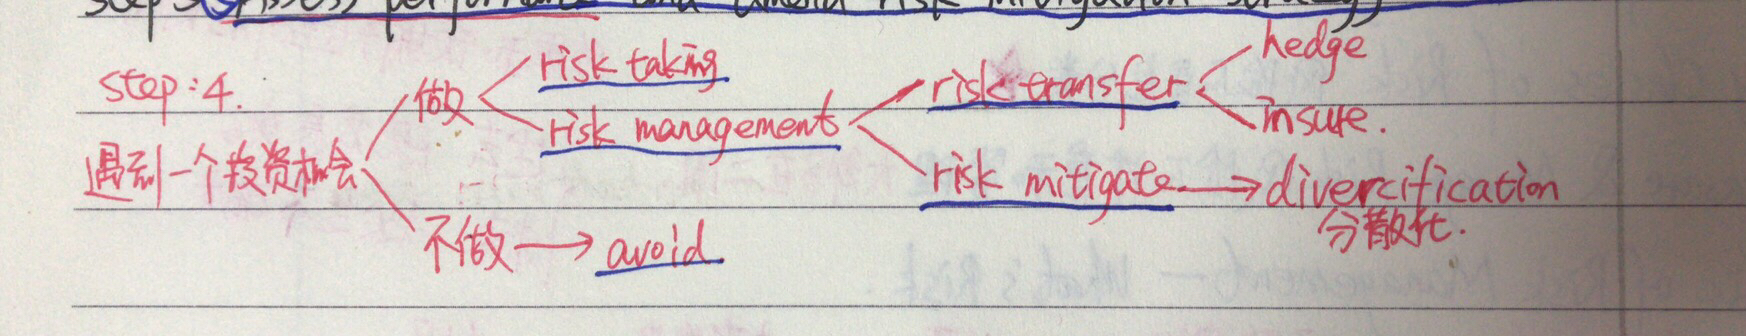 performance and amend risk mitigation strategy
step:4.
遇到一个投资机会
做
risk taking
risk management
risk transfer
hedge
insure.
risk mitigate → divercification
分散化.
不做 → avoid